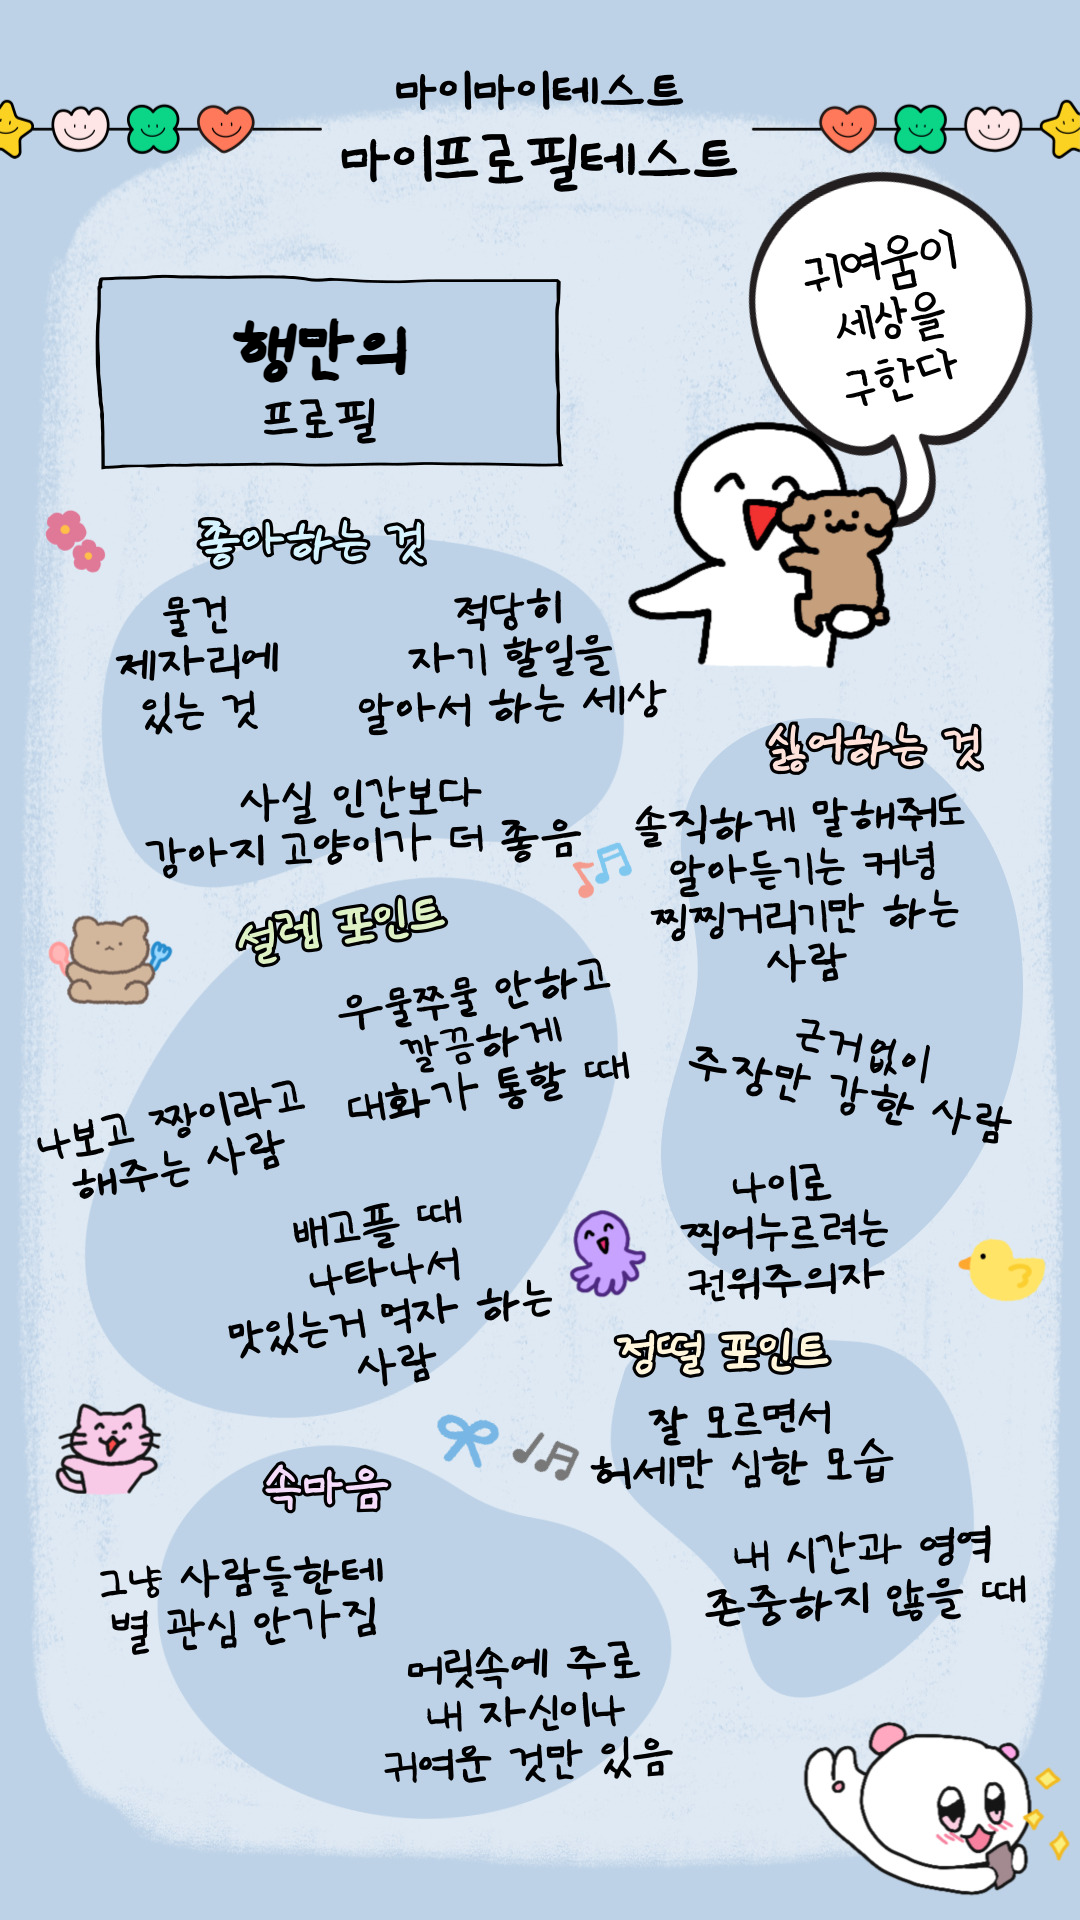 마이마이테스트
마이프로필테스트
귀여움이
세상을
구한다
행만의
프로필
좋아하는 것
물건
제자리에
있는 것
적당히
자기 할일을
알아서 하는 세상
사실 인간보다
강아지 고양이가 더 좋음
싫어하는 것
솔직하게 말해줘도
알아듣기는 커녕
찡찡거리기만 하는
사람
근거없이
주장만 강한 사람
나이로
찍어누르려는
권위주의자
설렘 포인트
우물쭈물 안하고
깔끔하게
대화가 통할 때
나보고 짱이라고
해주는 사람
배고플 때
나타나서
맛있는거 먹자 하는
사람
정떨 포인트
잘 모르면서
허세만 심한 모습
내 시간과 영역
존중하지 않을 때
속마음
그냥 사람들한테
별 관심 안가짐
머릿속에 주로
내 자신이나
귀여운 것만 있음